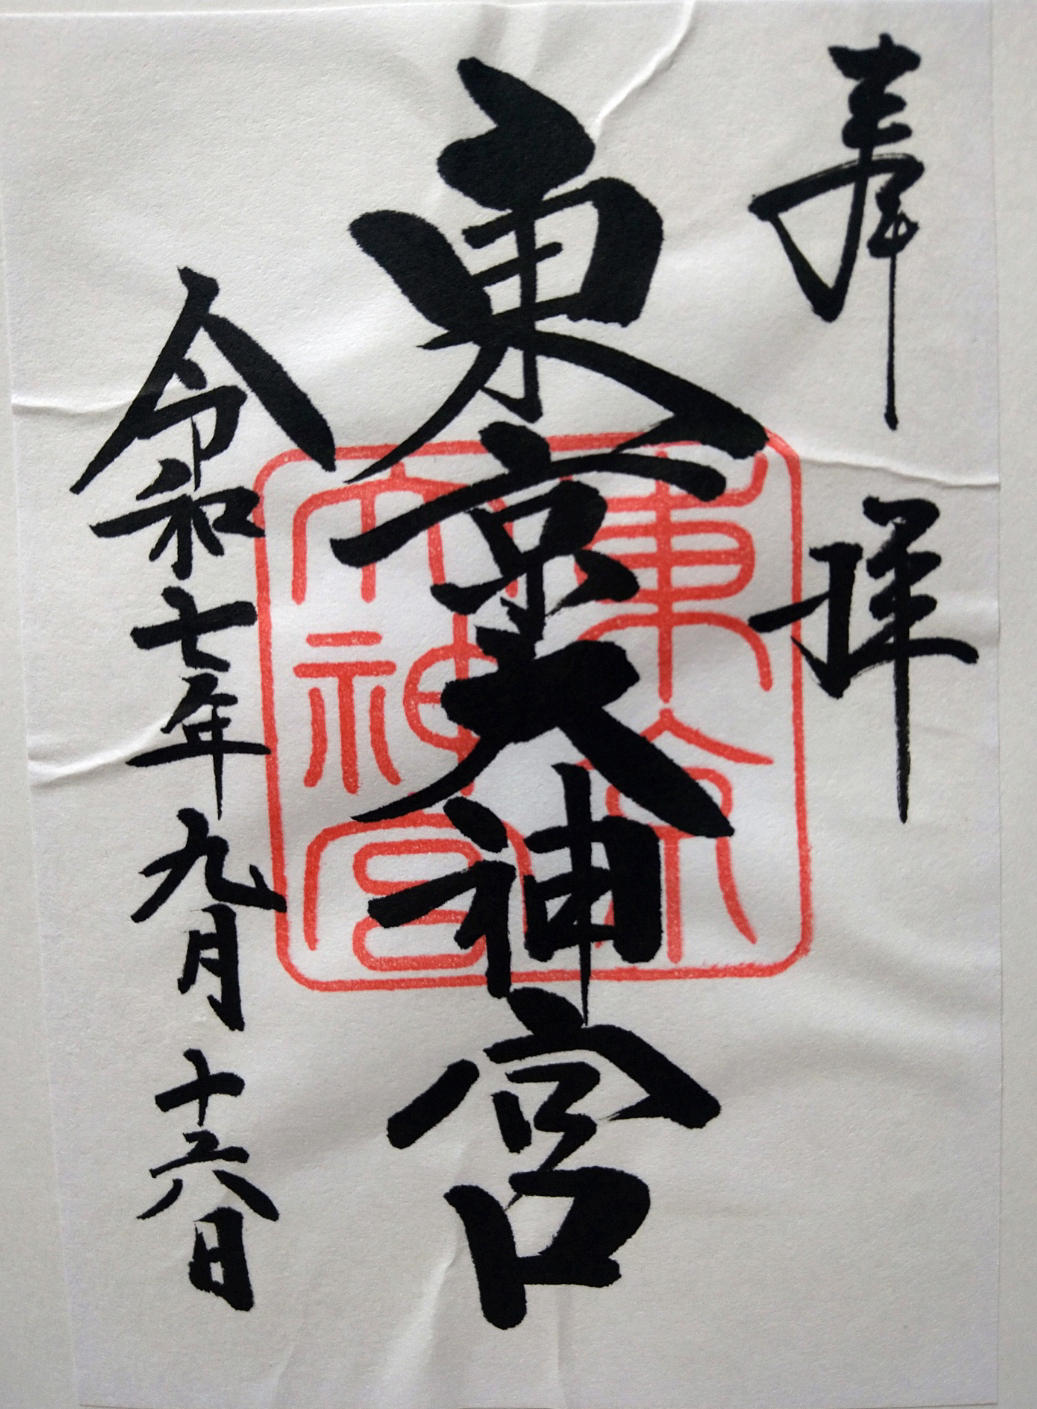 奉拝
東京大神宮
令和七年九月十六日
東京
大神宮